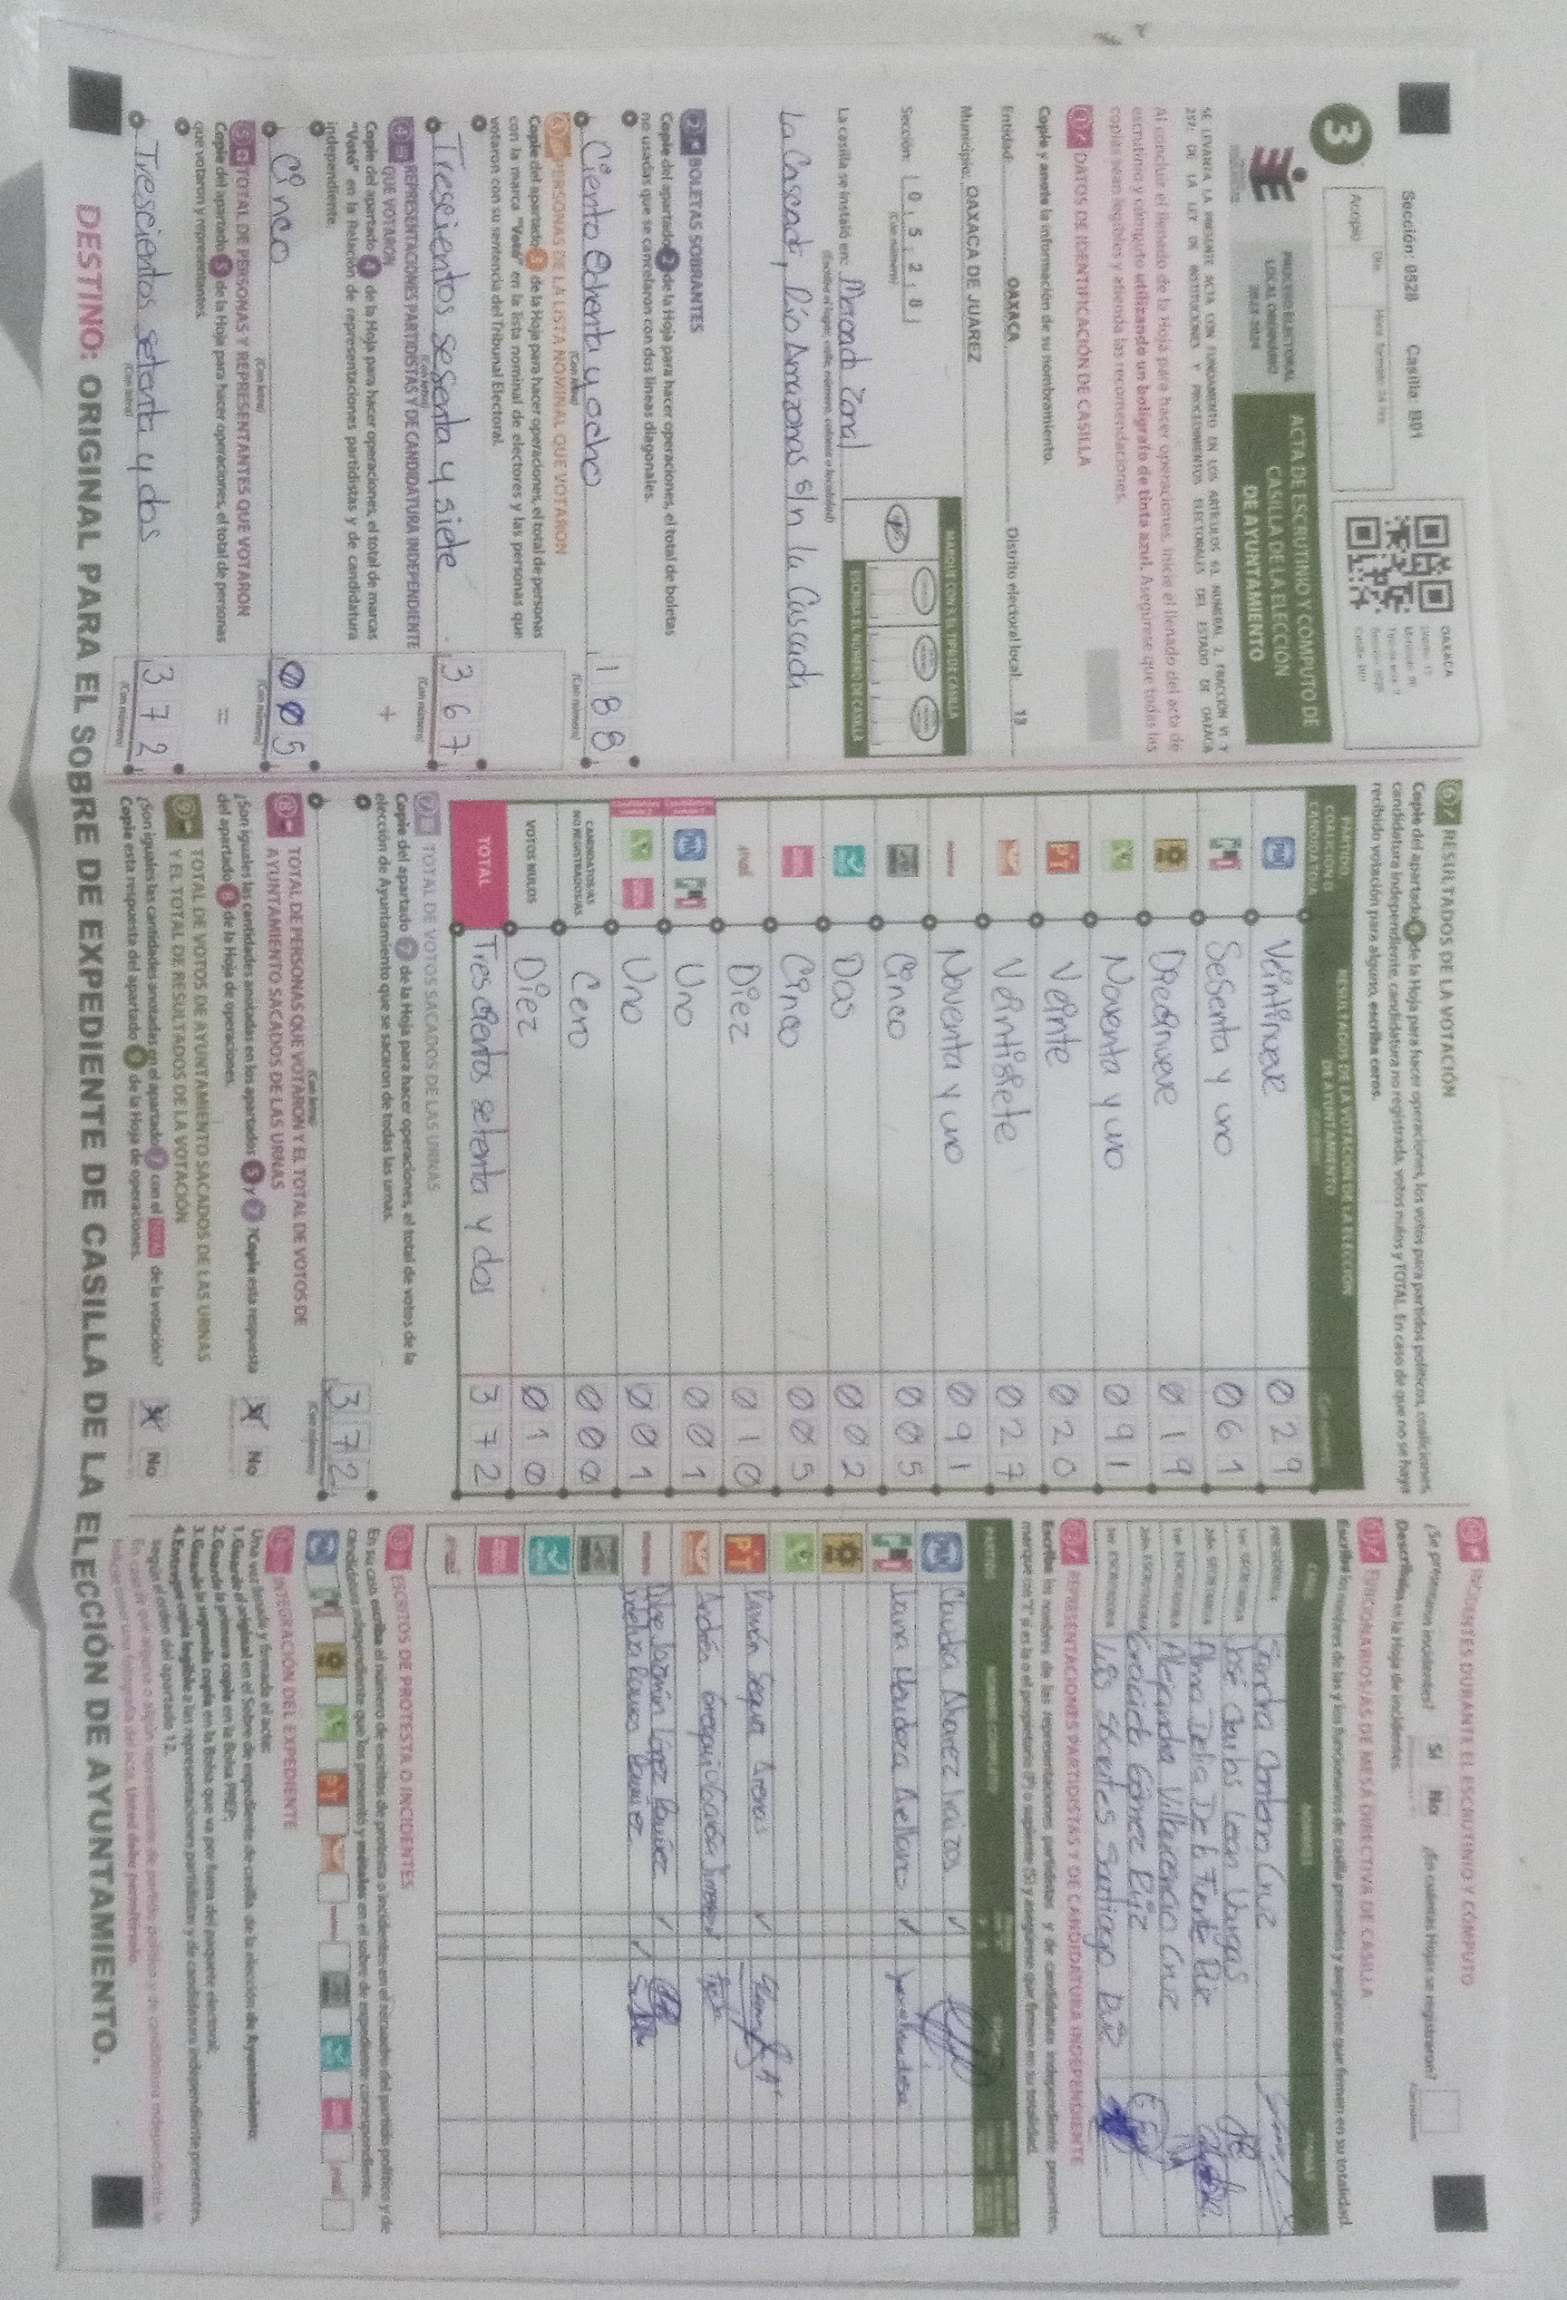 Sección: 0528 Casilla: B01
3
Acopio
PROCESO ELECTORAL
LOCAL ORDINARIO
2023-2024
ACTA DE ESCRUTINIO Y CÓMPUTO DE
CASILLA DE LA ELECCIÓN
DE AYUNTAMIENTO
SE LEVANTA LA PRESENTE ACTA CON FUNDAMENTO EN LOS ARTÍCULOS 61, NUMERAL 2, FRACCIÓN VI Y
237; DE LA LEY DE INSTITUCIONES Y PROCEDIMIENTOS ELECTORALES DEL ESTADO DE OAXACA
Al concluir el llenado de la Hoja para hacer operaciones, inicie el llenado del acta de
escrutinio y cómputo utilizando un bolígrafo de tinta azul. Asegúrese que todas las
copias sean legibles y atienda las recomendaciones.
1 DATOS DE IDENTIFICACIÓN DE CASILLA
Copie y anote la información de su nombramiento.
Entidad: OAXACA Distrito electoral local: 13
Municipio: OAXACA DE JUÁREZ
Sección: 0 5 2 8
(Con número)
MARQUE CON X EL TIPO DE CASILLA
ESCRIBA EL NÚMERO DE CASILLA
La casilla se instaló en: Mercado Zonal
(Escriba el lugar, calle, número, colonia o localidad)
La Cascada, Río Amazonas s/n la Cascada
2 BOLETAS SOBRANTES
Copie del apartado 2 de la Hoja para hacer operaciones, el total de boletas
no usadas que se cancelaron con dos líneas diagonales.
Ciento Ochenta y ocho 1 8 8
(Con letra) (Con número)
3 PERSONAS DE LA LISTA NOMINAL QUE VOTARON
Copie del apartado 3 de la Hoja para hacer operaciones, el total de personas
con la marca "Votó" en la lista nominal de electores y las personas que
votaron con su sentencia del Tribunal Electoral.
Trescientos sesenta y siete 3 6 7
(Con letra) (Con número)
4 REPRESENTACIONES PARTIDISTAS Y DE CANDIDATURA INDEPENDIENTE
QUE VOTARON
Copie del apartado 4 de la Hoja para hacer operaciones, el total de marcas
"Votó" en la Relación de representaciones partidistas y de candidatura
independiente.
+
Cinco 0 0 5
(Con letra) (Con número)
5 TOTAL DE PERSONAS Y REPRESENTANTES QUE VOTARON
Copie del apartado 5 de la Hoja para hacer operaciones, el total de personas
que votaron y representantes.
=
Trescientos setenta y dos 3 7 2
(Con letra) (Con número)
6 RESULTADOS DE LA VOTACIÓN
Copie del apartado 6 de la Hoja para hacer operaciones, los votos para partidos políticos, coaliciones,
candidatura independiente, candidatura no registrada, votos nulos y TOTAL. En caso de que no se haya
recibido votación para alguno, escriba ceros.
PARTIDO,
COALICIÓN O
CANDIDATO/A
RESULTADOS DE LA VOTACIÓN DE LA ELECCIÓN
DE AYUNTAMIENTO
PAN Veintinueve 0 2 9
Sesenta y uno 0 6 1
Diecinueve 0 1 9
Noventa y uno 0 9 1
PT Veinte 0 2 0
Veintisiete 0 2 7
Noventa y uno 0 9 1
Cinco 0 0 5
Dos 0 0 2
Cinco 0 0 5
Diez 0 1 0
PAN Uno 0 0 1
Uno 0 0 1
CANDIDATOS/AS
NO REGISTRADOS/AS
Cero 0 0 0
VOTOS NULOS Diez 0 1 0
TOTAL Trescientos setenta y dos 3 7 2
7 TOTAL DE VOTOS SACADOS DE LAS URNAS
Copie del apartado 7 de la Hoja para hacer operaciones, el total de votos de la
elección de Ayuntamiento que se sacaron de todas las urnas.
3 7 2
(Con letra) (Con número)
8 TOTAL DE PERSONAS QUE VOTARON Y EL TOTAL DE VOTOS DE
AYUNTAMIENTO SACADOS DE LAS URNAS
¿Son iguales las cantidades anotadas en los apartados 5 y 7 ? Copie esta respuesta
del apartado 8 de la Hoja de operaciones.
No
9 TOTAL DE VOTOS DE AYUNTAMIENTO SACADOS DE LAS URNAS
Y EL TOTAL DE RESULTADOS DE LA VOTACIÓN
¿Son iguales las cantidades anotadas en el apartado 7 con el TOTAL de la votación?
Copie esta respuesta del apartado 9 de la Hoja de operaciones.
No
10 INCIDENTES DURANTE EL ESCRUTINIO Y CÓMPUTO
¿Se presentaron incidentes? Sí No ¿En cuántas Hojas se registraron?
Descríbalos en la Hoja de incidentes.
11 FUNCIONARIOS/AS DE MESA DIRECTIVA DE CASILLA
Escriba los nombres de las y los funcionarios de casilla presentes y asegúrese que firmen en su totalidad.
CARGO NOMBRES FIRMAS
PRESIDENTE/A Sandra Centeno Cruz
1er. SECRETARIO/A José Carlos León Vargas
2do. SECRETARIO/A Alma Delia De la Fuente Ruiz
1er. ESCRUTADOR/A Alejandra Villavicencio Cruz
2do. ESCRUTADOR/A Graciela Gómez Ruiz
3er. ESCRUTADOR/A Luis Santiago Ruiz
12 REPRESENTACIONES PARTIDISTAS Y DE CANDIDATURA INDEPENDIENTE
Escriba los nombres de las representaciones partidistas y de candidatura independiente presentes,
marque con "X" si es la o el propietario (P) o suplente (S) y asegúrese que firmen en su totalidad.
PARTIDO NOMBRE COMPLETO
PAN Claudia Alvarez
PT Ramón Segura Arenas
Andrén
Alba Jazmín López Ramírez
Ramos Ramírez
13 ESCRITOS DE PROTESTA O INCIDENTES
En su caso, escriba el número de escritos de protesta o incidentes en el recuadro del partido político y de
candidatura independiente que los presentó y métalos en el sobre de expediente correspondiente.
14 INTEGRACIÓN DEL EXPEDIENTE
Una vez llenada y firmada el acta:
1. Guarde el original en el Sobre de expediente de casilla de la elección de Ayuntamiento;
2. Guarde la primera copia en la Bolsa PREP;
3. Guarde la segunda copia en la Bolsa que va por fuera del paquete electoral;
4. Entregue copia legible a las representaciones partidistas y de candidatura independiente presentes,
según el orden del apartado 12.
DESTINO: ORIGINAL PARA EL SOBRE DE EXPEDIENTE DE CASILLA DE LA ELECCIÓN DE AYUNTAMIENTO.